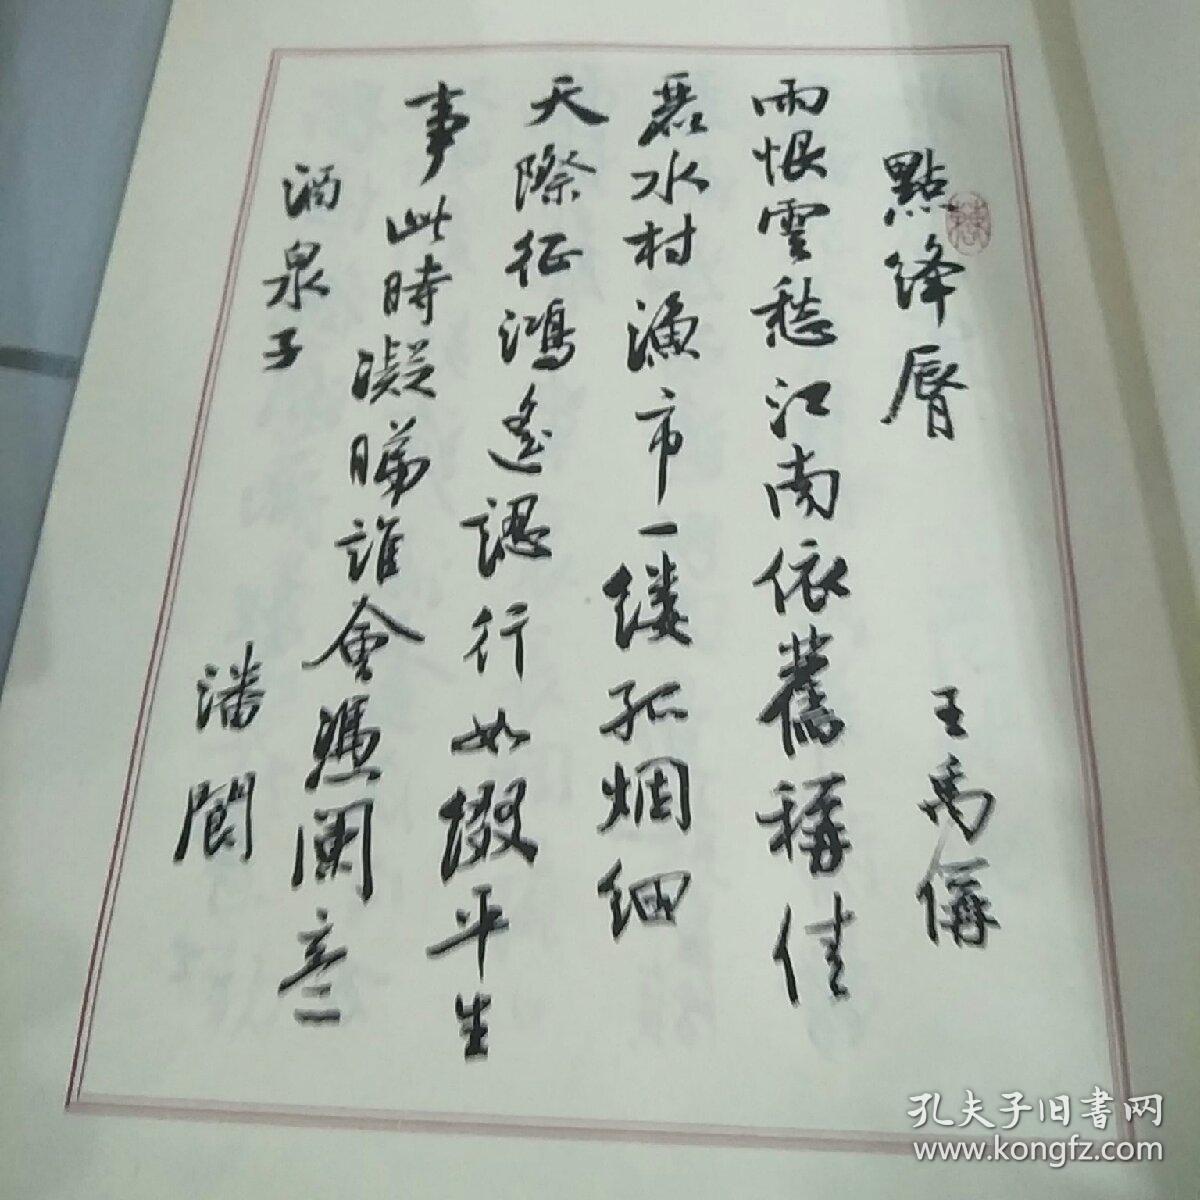 點绛唇 王禹偁
雨恨雲愁江南依舊稱佳
麗水村漁市一缕孤烟细
天際征鴻遙認行如缀平生
事此時凝睇誰會憑阑意
酒泉子 潘閬
孔夫子旧書网
www.kongfz.com